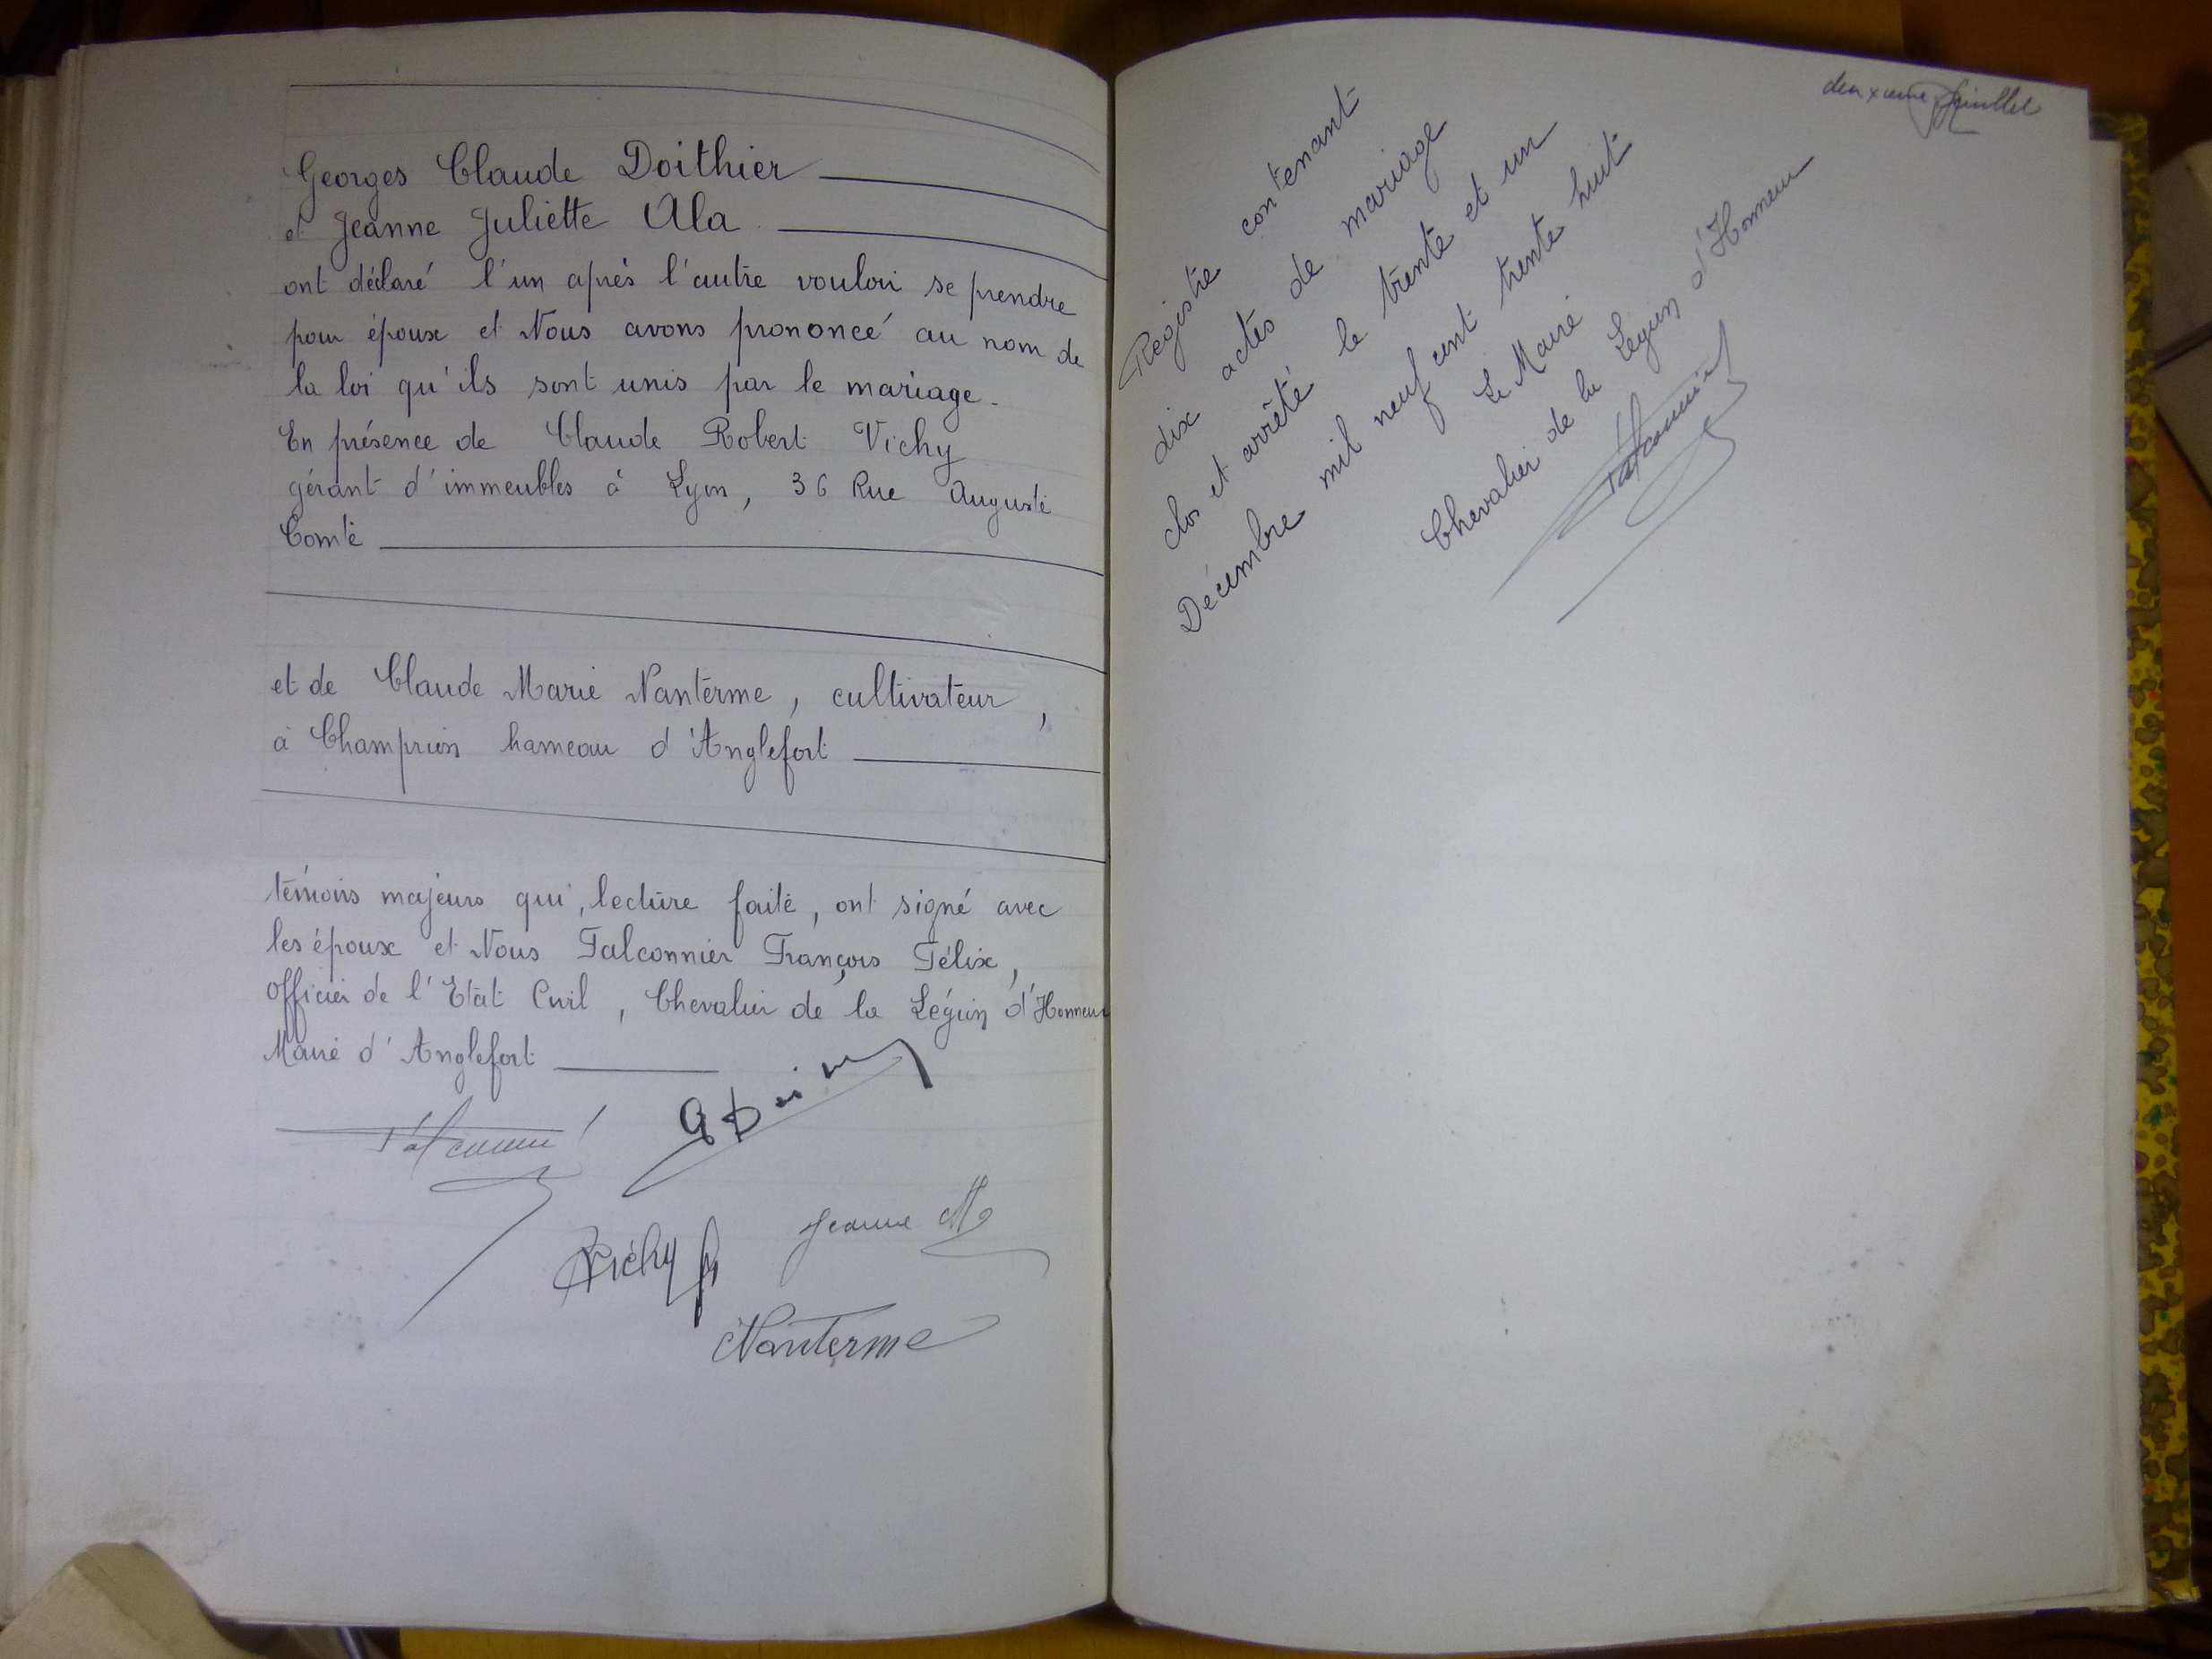 Georges Claude Doithier
et Jeanne Juliette Ala
ont déclaré l'un après l'autre vouloir se prendre
pour époux et Nous avons prononcé au nom de
la loi qu'ils sont unis par le mariage.
En présence de Claude Robert Vichy
gérant d'immeubles à Lyon, 36 Rue Auguste
Comte
et de Claude Marie Nanterme, cultivateur,
à Champrion hameau d'Anglefort
témoins majeurs qui, lecture faite, ont signé avec
les époux et Nous Falconnier François Félix,
Officier de l'Etat Civil, Chevalier de la Légion d'Honneur
Maire d'Anglefort
Falconnier
Vichy
Jeanne
Nanterme
deuxième feuillet
Registre contenant
dix actes de mariage
clos et arrêté le trente et un
Décembre mil neuf cent trente huit
Le Maire
Chevalier de la Légion d'Honneur
Falconnier